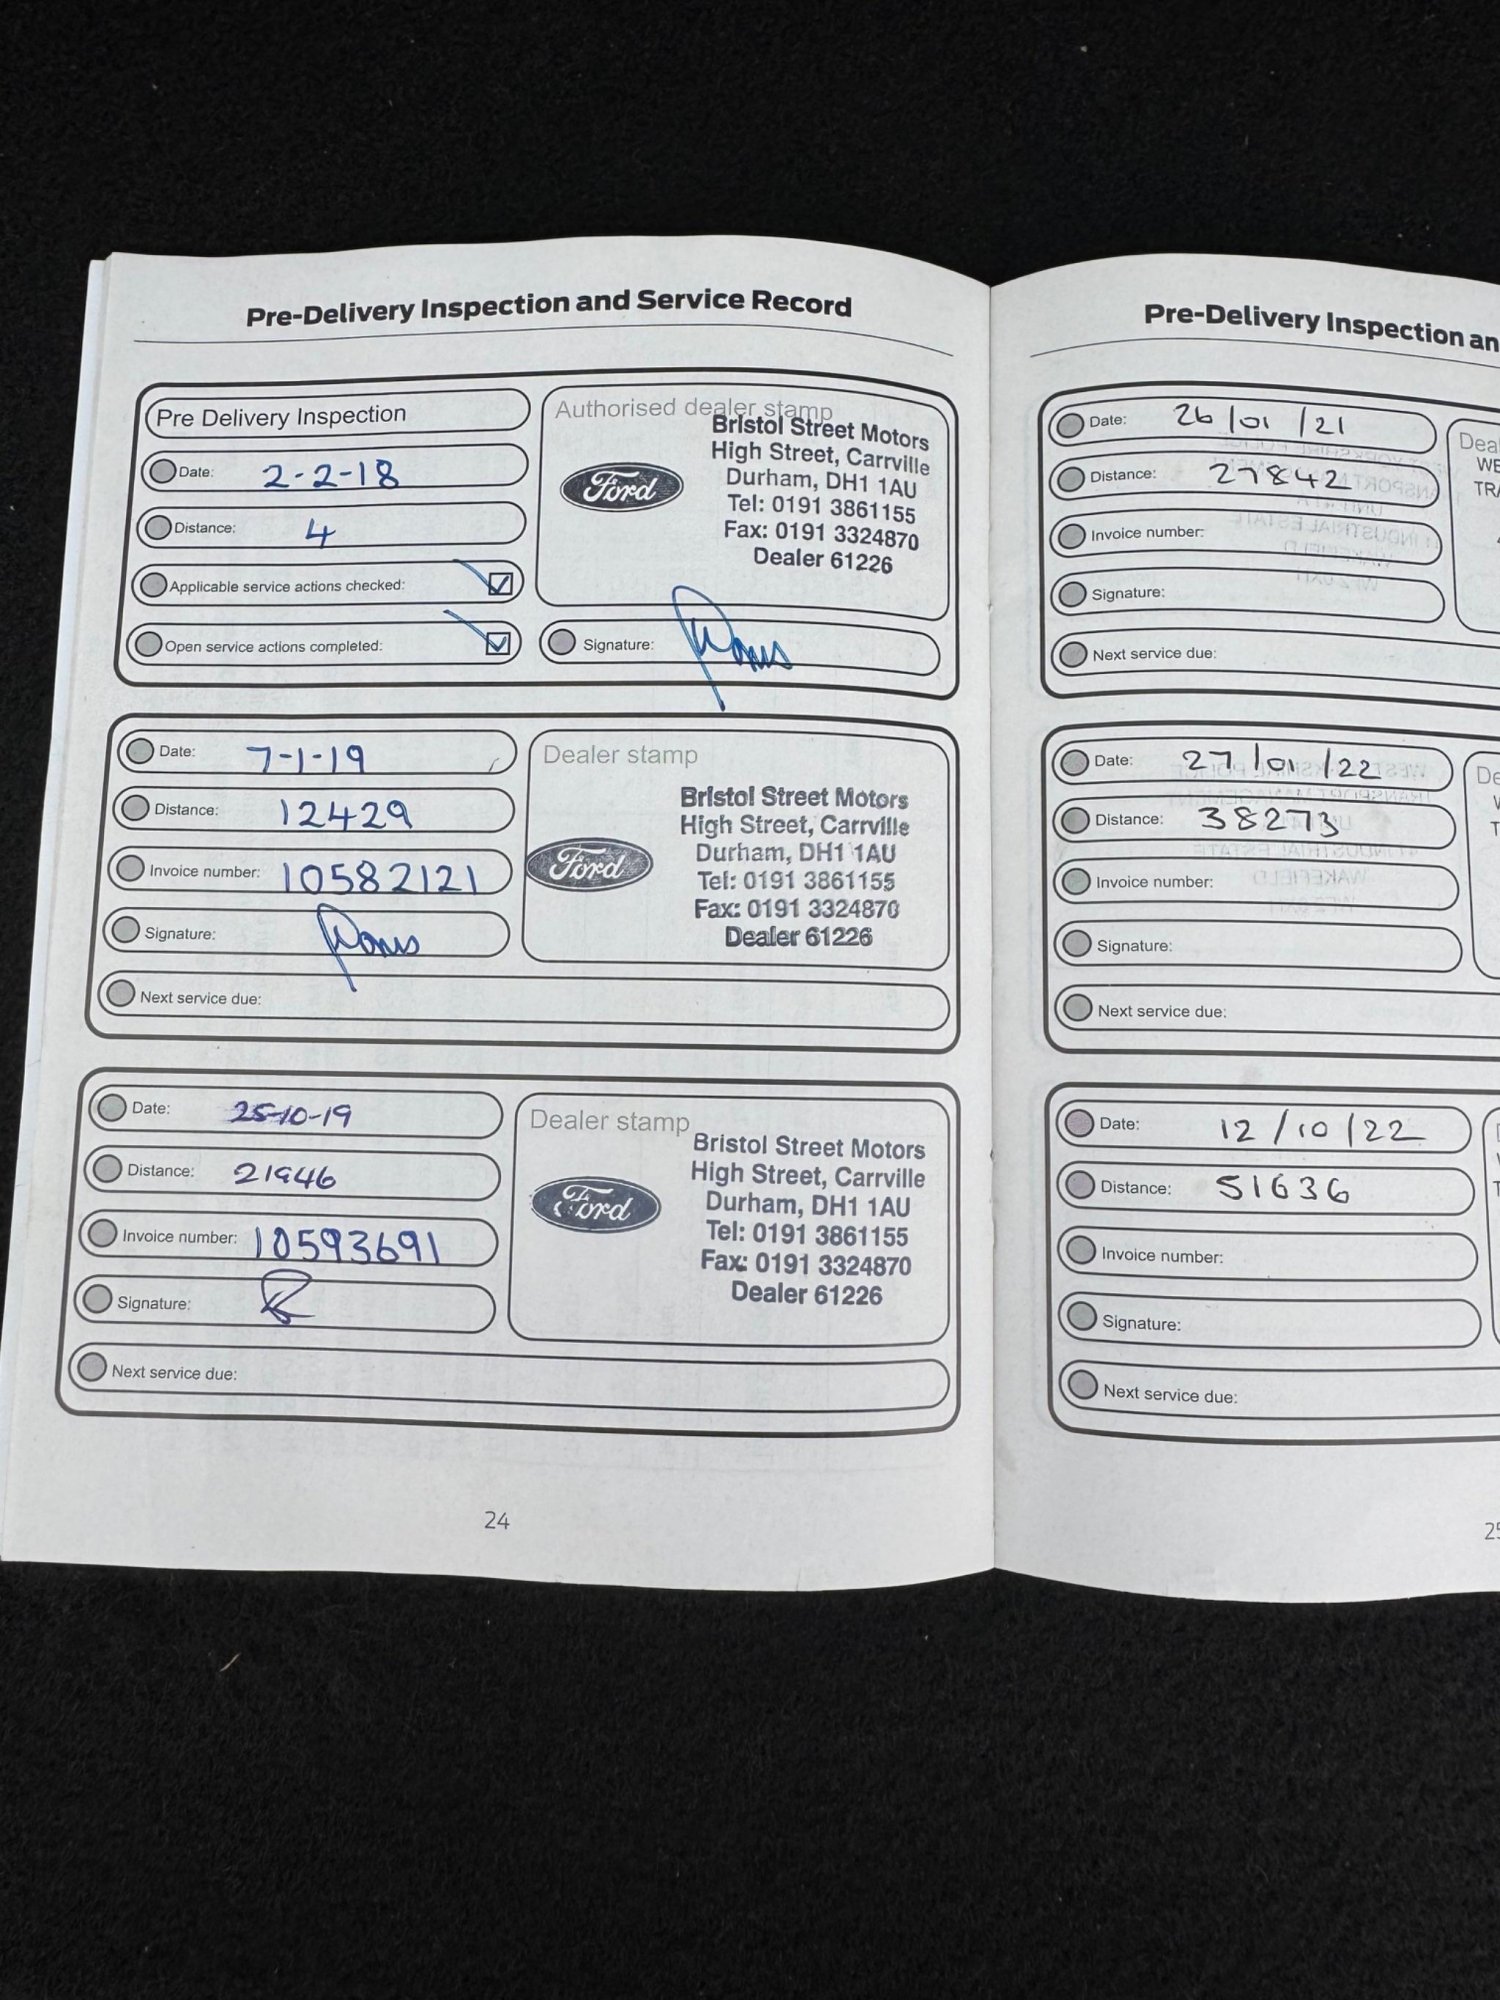 Pre-Delivery Inspection and Service Record
Pre Delivery Inspection
Date: 2-2-18
Distance: 4
Applicable service actions checked:
Open service actions completed:
Authorised dealer stamp
Ford
Bristol Street Motors
High Street, Carrville
Durham, DH1 1AU
Tel: 0191 3861155
Fax: 0191 3324870
Dealer 61226
Signature:
Date: 7-1-19
Distance: 12429
Invoice number: 10582121
Signature:
Next service due:
Dealer stamp
Ford
Bristol Street Motors
High Street, Carrville
Durham, DH1 1AU
Tel: 0191 3861155
Fax: 0191 3324870
Dealer 61226
Date: 25-10-19
Distance: 21946
Invoice number: 10593691
Signature:
Next service due:
Dealer stamp
Ford
Bristol Street Motors
High Street, Carrville
Durham, DH1 1AU
Tel: 0191 3861155
Fax: 0191 3324870
Dealer 61226
24
Pre-Delivery Inspection an
Date: 26/01/21
Distance: 27842
Invoice number:
Signature:
Next service due:
Deal
WE
TRA
Date: 27/01/22
Distance: 38273
Invoice number:
Signature:
Next service due:
De
Date: 12/10/22
Distance: 51636
Invoice number:
Signature:
Next service due: